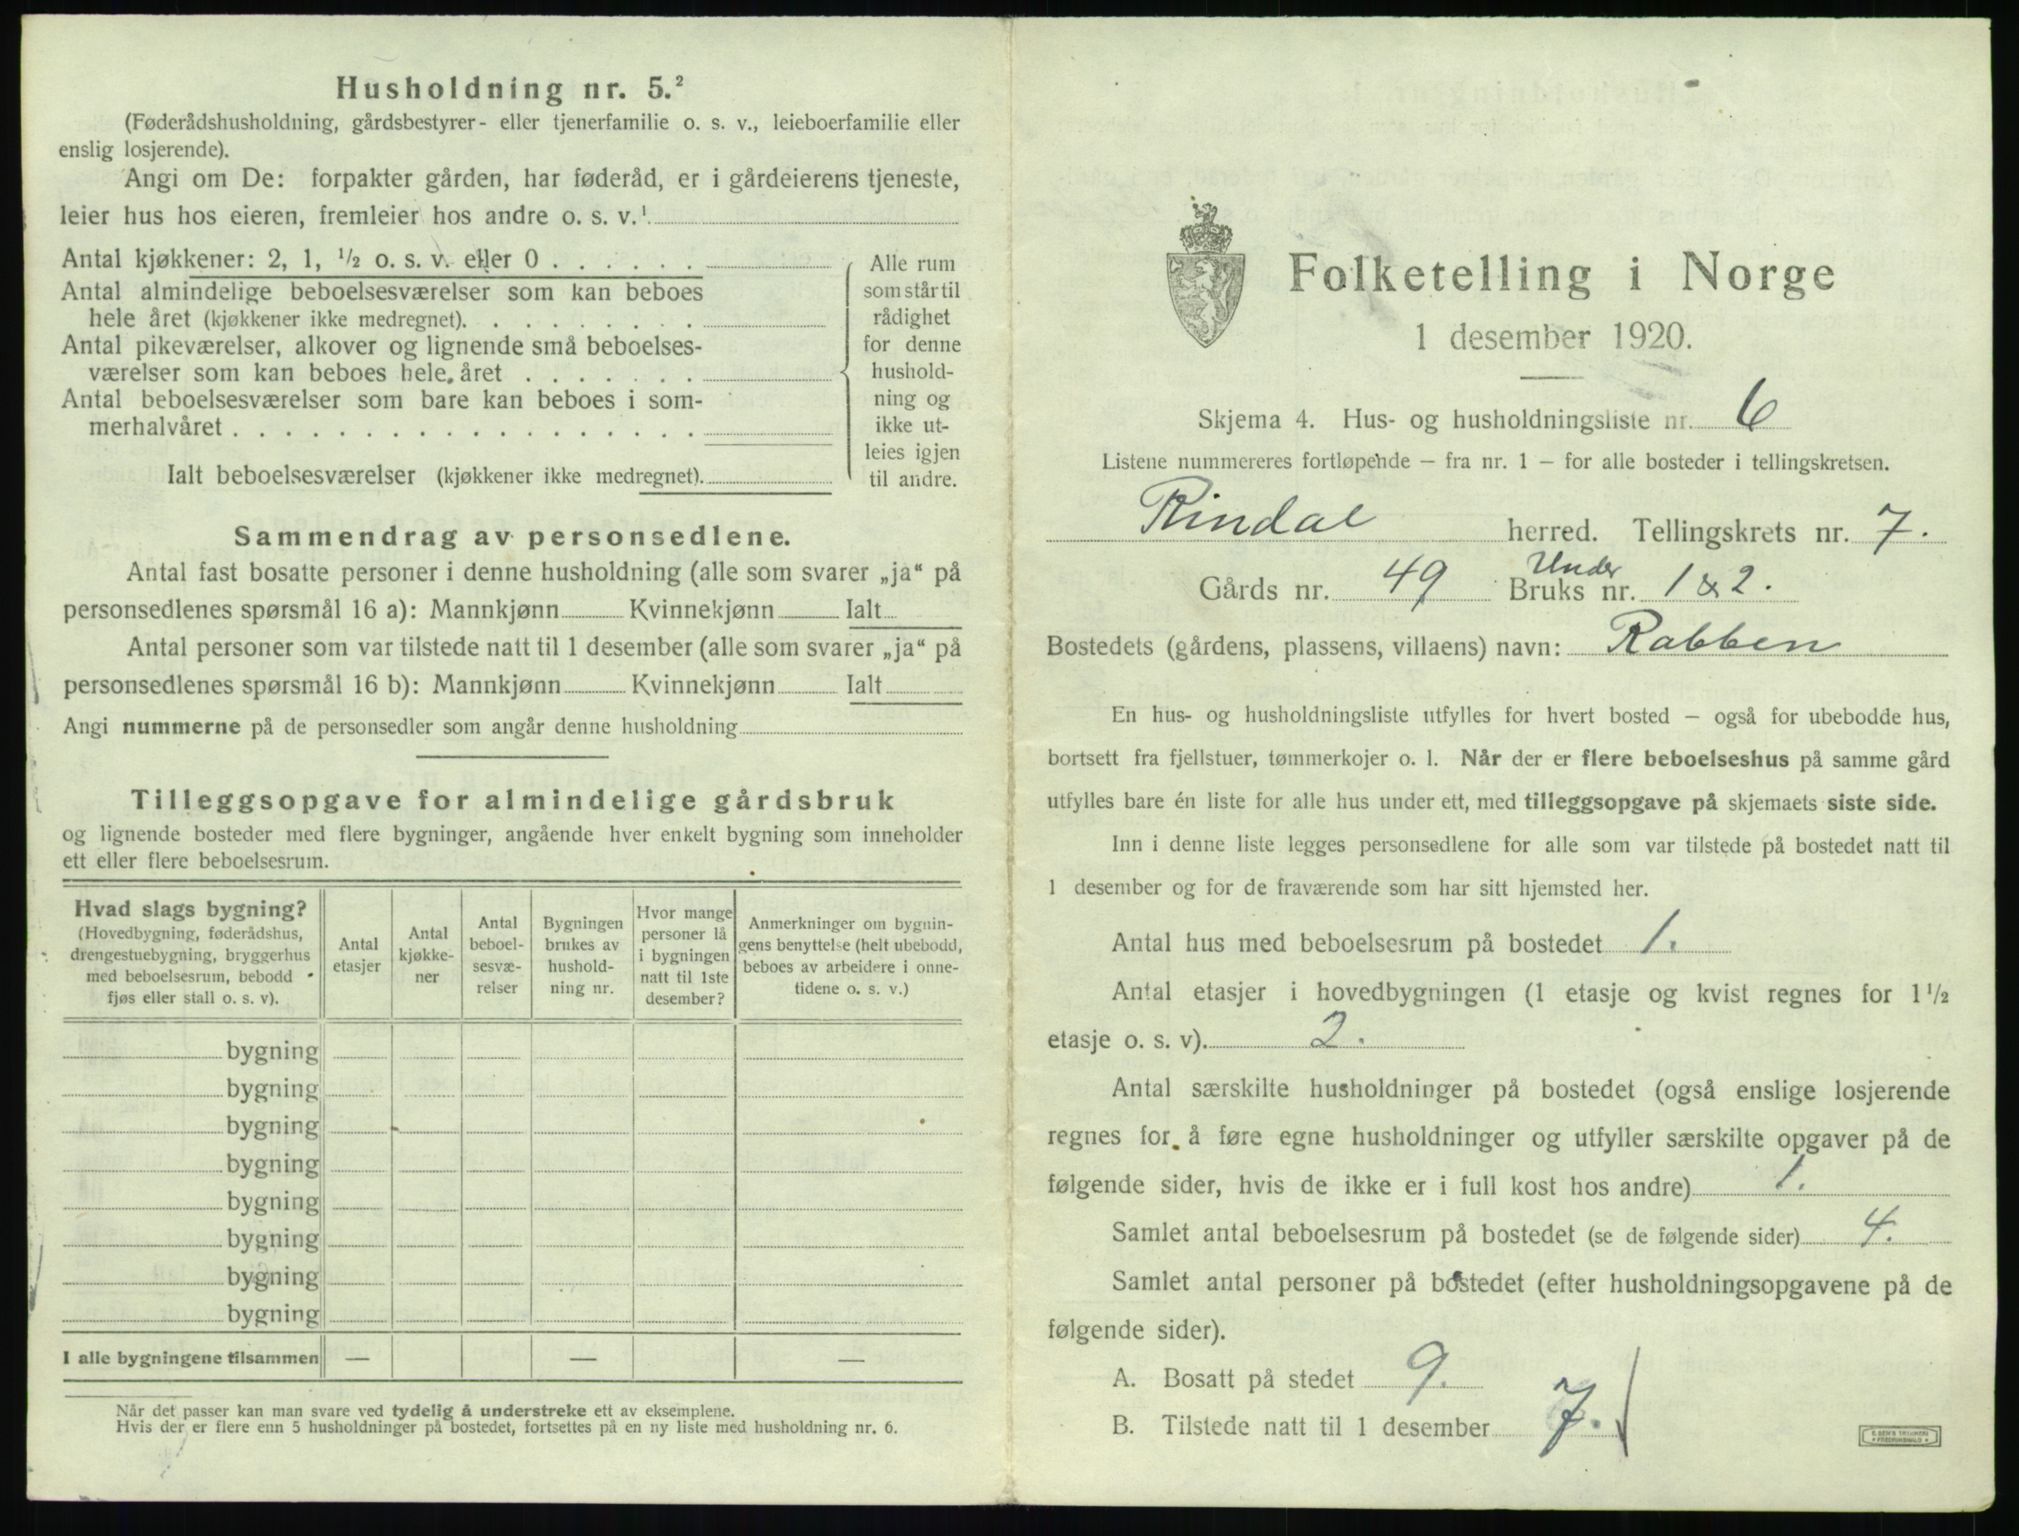 Husholdning nr. 5.²
(Føderådshusholdning, gårdsbestyrer- eller tjenerfamilie o. s. v., leieboerfamilie eller
enslig losjerende).
Angi om De: forpakter gården, har føderåd, er i gårdeierens tjeneste,
leier hus hos eieren, fremleier hos andre o. s. v.¹
Antal kjøkkener: 2, 1, ½ o. s. v. eller 0 . . . . . .
Antal almindelige beboelsesværelser som kan beboes
hele året (kjøkkener ikke medregnet). . . . . . . . .
Antal pikeværelser, alkover og lignende små beboelses-
værelser som kan beboes hele året . . . . . . .
Antal beboelsesværelser som bare kan beboes i som-
merhalvåret . . . . . . . . . . . . . . . . . .
Ialt beboelsesværelser (kjøkkener ikke medregnet).
Alle rum
som står til
rådighet
for denne
hushold-
ning og
ikke ut-
leies igjen
til andre.
Sammendrag av personsedlene.
Antal fast bosatte personer i denne husholdning (alle som svarer „ja“ på
personsedlenes spørsmål 16 a): Mannkjønn Kvinnekjønn Ialt
Antal personer som var tilstede natt til 1 desember (alle som svarer „ja“ på
personsedlenes spørsmål 16 b): Mannkjønn Kvinnekjønn Ialt
Angi nummerne på de personsedler som angår denne husholdning
Tilleggsopgave for almindelige gårdsbruk
og lignende bosteder med flere bygninger, angående hver enkelt bygning som inneholder
ett eller flere beboelsesrum.
Hvad slags bygning?
(Hovedbygning, føderådshus,
drengestuebygning, bryggerhus
med beboelsesrum, bebodd
fjøs eller stall o. s. v).
Antal
etasjer
Antal
kjøkke-
ner
Antal
beboel-
sesvæ-
relser
Bygningen
brukes av
hushold-
ning nr.
Hvor mange
personer lå
i bygningen
natt til 1ste
desember?
Anmerkninger om bygnin-
gens benyttelse (helt ubebodd,
beboes av arbeidere i onne-
tidene o. s. v.)
bygning
bygning
bygning
bygning
bygning
bygning
bygning
bygning
I alle bygningene tilsammen — — —
Når det passer kan man svare ved tydelig å understreke ett av eksemplene.
Hvis der er flere enn 5 husholdninger på bostedet, fortsettes på en ny liste med husholdning nr. 6.
Folketelling i Norge
1 desember 1920.
Skjema 4. Hus- og husholdningsliste nr. 6
Listene nummereres fortløpende – fra nr. 1 – for alle bosteder i tellingskretsen.
Rindal herred. Tellingskrets nr. 7.
Under
Gårds nr. 49 Bruks nr. 1 & 2.
Bostedets (gårdens, plassens, villaens) navn: Rabben
En hus- og husholdningsliste utfylles for hvert bosted – også for ubebodde hus,
bortsett fra fjellstuer, tømmerkojer o. l. Når der er flere beboelseshus på samme gård
utfylles bare én liste for alle hus under ett, med tilleggsopgave på skjemaets siste side.
Inn i denne liste legges personsedlene for alle som var tilstede på bostedet natt til
1 desember og for de fraværende som har sitt hjemsted her.
Antal hus med beboelsesrum på bostedet 1.
Antal etasjer i hovedbygningen (1 etasje og kvist regnes for 1½
etasje o. s. v). 2.
Antal særskilte husholdninger på bostedet (også enslige losjerende
regnes for å føre egne husholdninger og utfyller særskilte opgaver på de
følgende sider, hvis de ikke er i full kost hos andre) 1.
Samlet antal beboelsesrum på bostedet (se de følgende sider) 4.
Samlet antal personer på bostedet (efter husholdningsopgavene på de
følgende sider).
A. Bosatt på stedet 9.
B. Tilstede natt til 1 desember 7.